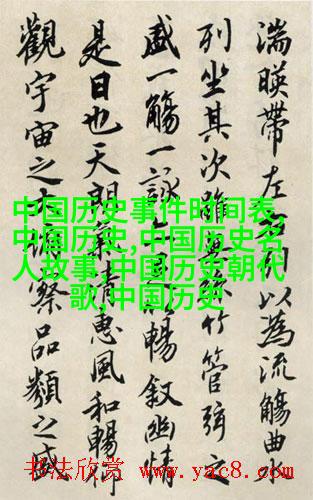 湍暎帶左右引以為流觴曲水
列坐其次雖無絲竹管弦之
盛一觴一詠亦足以暢敘幽情
是日也天朗氣清惠風和暢仰
觀宇宙之大俯察品類之盛
中国历史事件时间表,
中国历史,中国历史名
人故事,中国历史朝代
歌,中国历史
书法欣赏 www.yac8.com